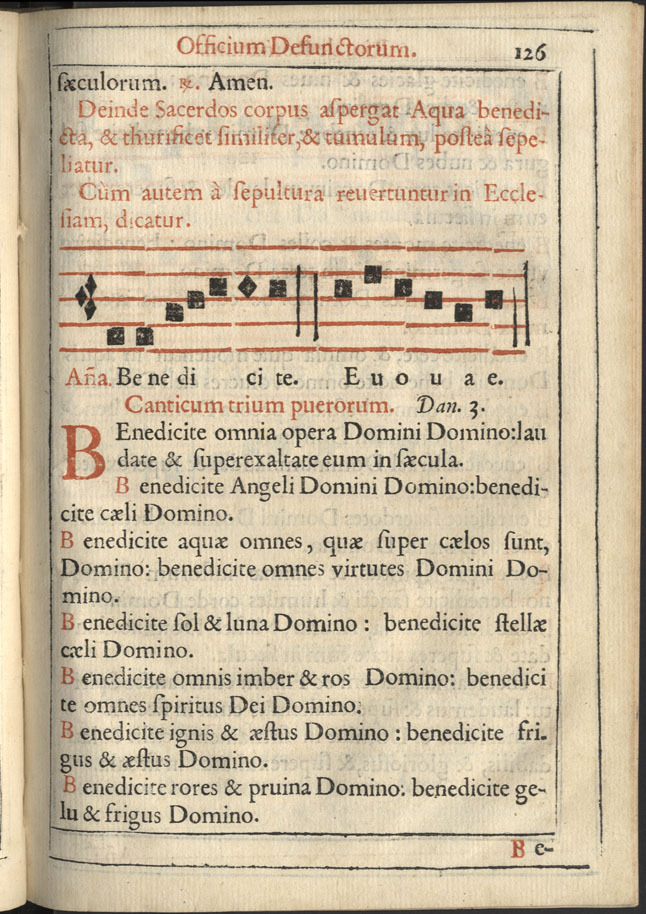 Officium Defunctorum. 126
sæculorum. ℞. Amen.
Deinde Sacerdos corpus aspergat Aqua benedi-
cta, & thurificet similiter, & tumulum, posteà sepe-
liatur.
Cùm autem à sepultura reuertuntur in Eccle-
siam, dicatur.
Aña. Be ne di ci te. E u o u a e.
Canticum trium puerorum. Dan. 3.
BEnedicite omnia opera Domini Domino: lau
date & superexaltate eum in sæcula.
Benedicite Angeli Domini Domino: benedi-
cite cæli Domino.
Benedicite aquæ omnes, quæ super cælos sunt,
Domino: benedicite omnes virtutes Domini Do-
mino.
Benedicite sol & luna Domino: benedicite stellæ
cæli Domino.
Benedicite omnis imber & ros Domino: benedici
te omnes spiritus Dei Domino.
Benedicite ignis & æstus Domino: benedicite fri-
gus & æstus Domino.
Benedicite rores & pruina Domino: benedicite ge-
lu & frigus Domino.
Be-